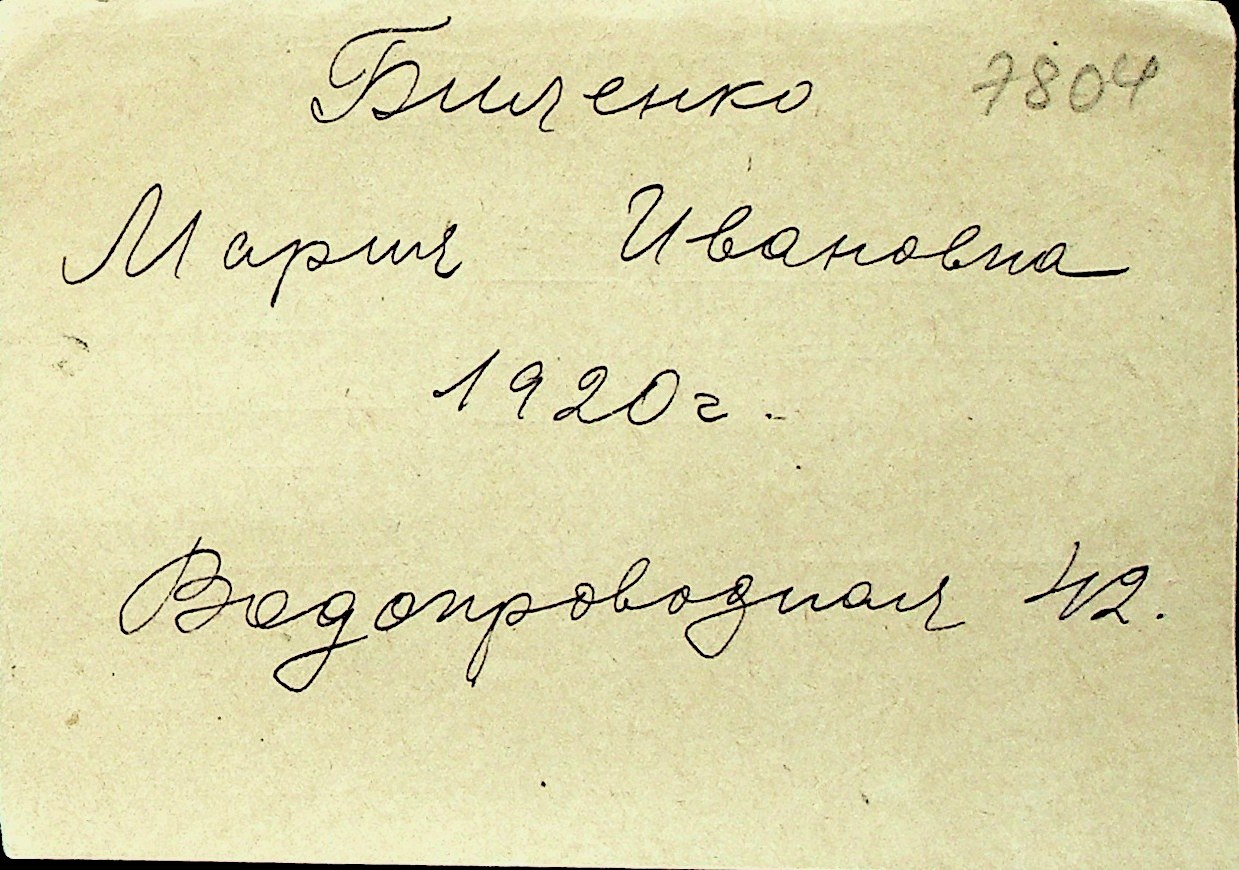 Биченко 7804
Мария Ивановна
1920г.
Водопроводная 42.